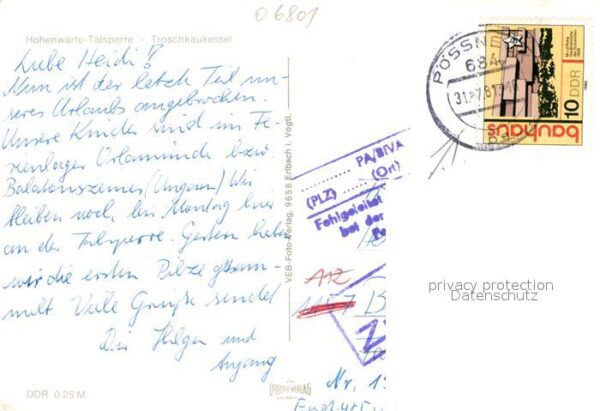 06801
Hohenwarte-Talsperre – Troschkaukessel
Liebe Heidi!
Nun ist der letzte Teil un-
seres Urlaubs angebrochen.
Unsere Kinder sind im Fe-
rienlager Orlamünde bzw.
Balatonszemes (Ungarn) Wir
bleiben noch bis Montag hier
an der Talsperre. Gestern haben
wir die ersten Pilze gesam-
melt. Viele Grüße sendet
Die Helga und
DDR 0,25 M
VEB-Foto-Verlag, 9658 Erlbach i. Vogtl.
PÖSSNE
684
31.-7.81
bauhaus
10 DDR
PA/BIVA
(PLZ) (Ort)
Fehlgeleitet
bei der
AIZ
1157 B
Nr. 1
privacy protection
Datenschutz